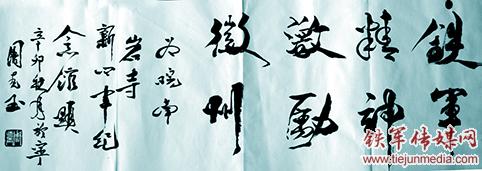 鐵軍
精神
激勵
徽州
为皖南
岩寺
新四军纪
念馆题
辛卯秋月於寧
周克玉
铁军传媒网
www.tiejunmedia.com